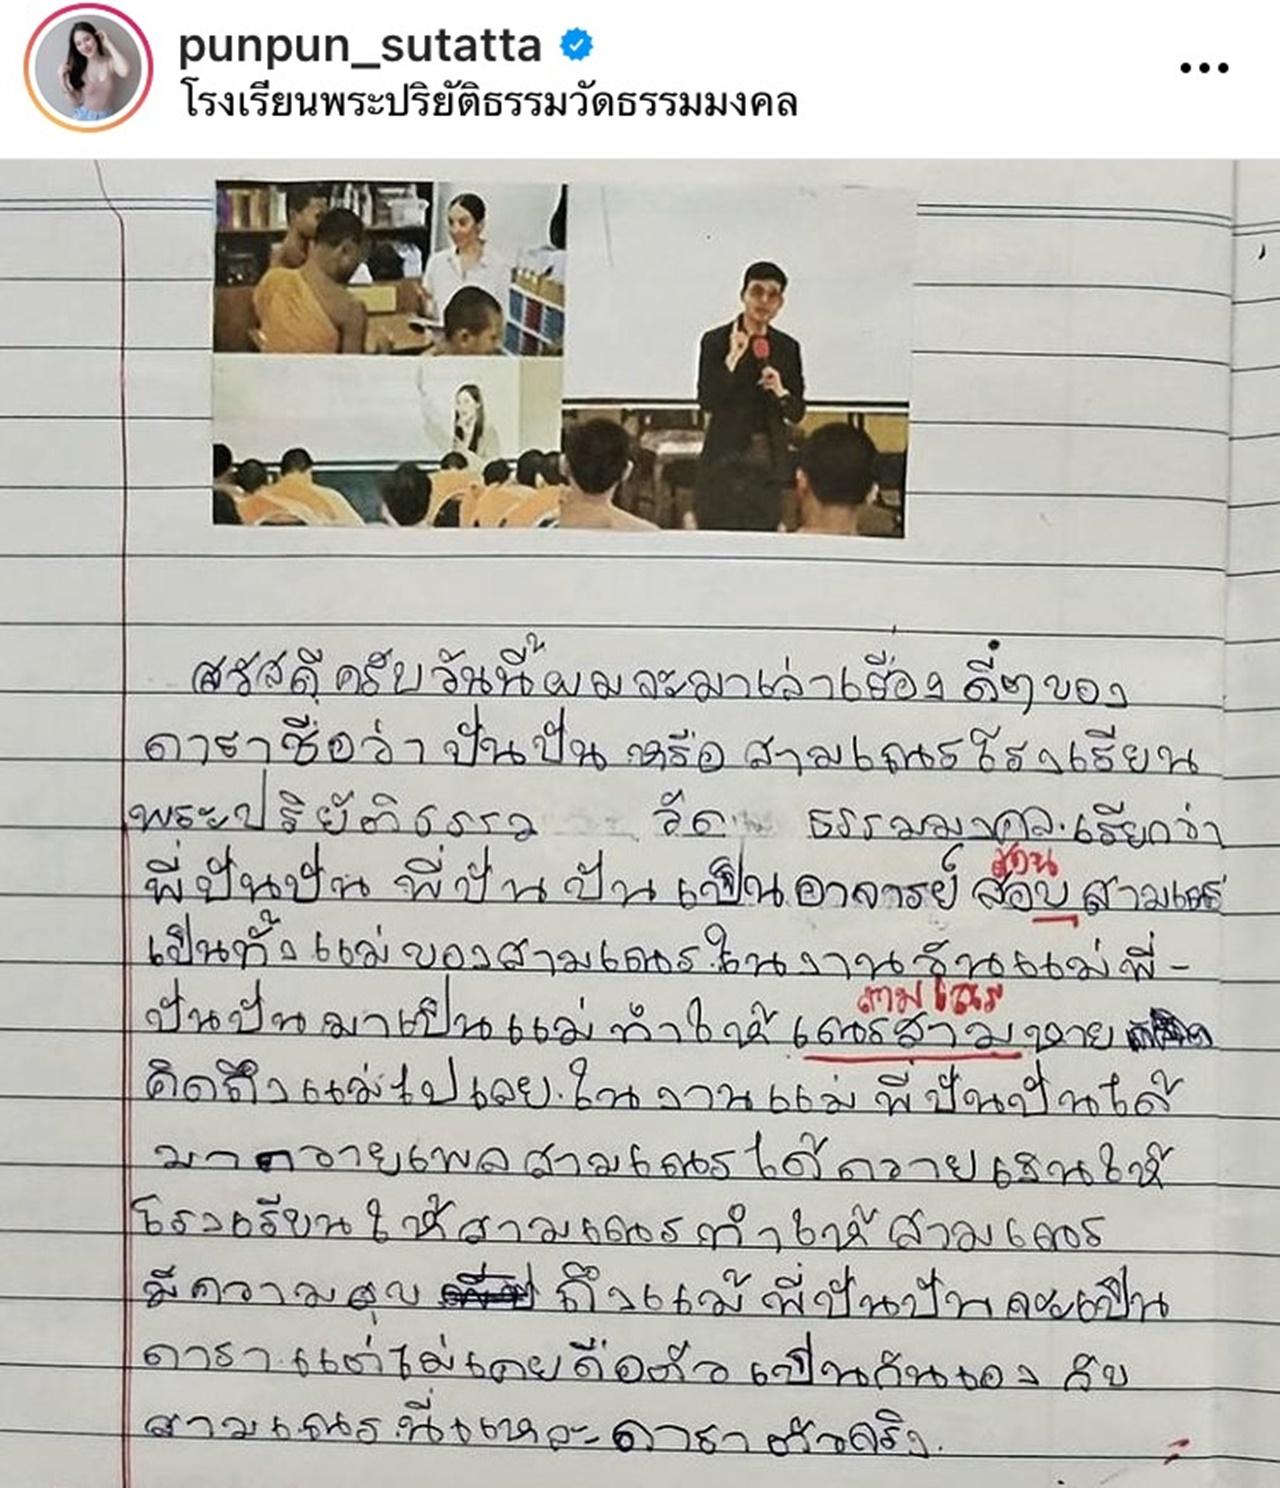 punpun_sutatta
โรงเรียนพระปริยัติธรรมวัดธรรมมงคล
สวัสดีครับวันนี้ผมจะมาเล่าเรื่องดีๆของ
ดาราชื่อว่า ปันปัน หรือ สามเณรโรงเรียน
พระปริยัติธรรม วัด ธรรมมงคล.เรียกว่า
พี่ปันปัน พี่ปันปันเป็นอาจารย์ สอบสามเณร
สอน
เป็นทั้งแม่ของสามเณร.ในงานวันแม่พี่-
ปันปันมาเป็นแม่ทำให้เณรสามหาย
สามเณร
คิดถึงแม่ไปเลย.ในงานแม่ พี่ปันปันได้
มาถวายเพลสามเณรได้ถวายเซนให้
โรงเรียนให้สามเณรทำให้สามเณร
มีความสุข ถึงแม้พี่ปันปันจะเป็น
ดารา.แต่ไม่เคยถือตัวเป็นกันเองกับ
สามเณร.นี่แหละดาราตัวจริง.